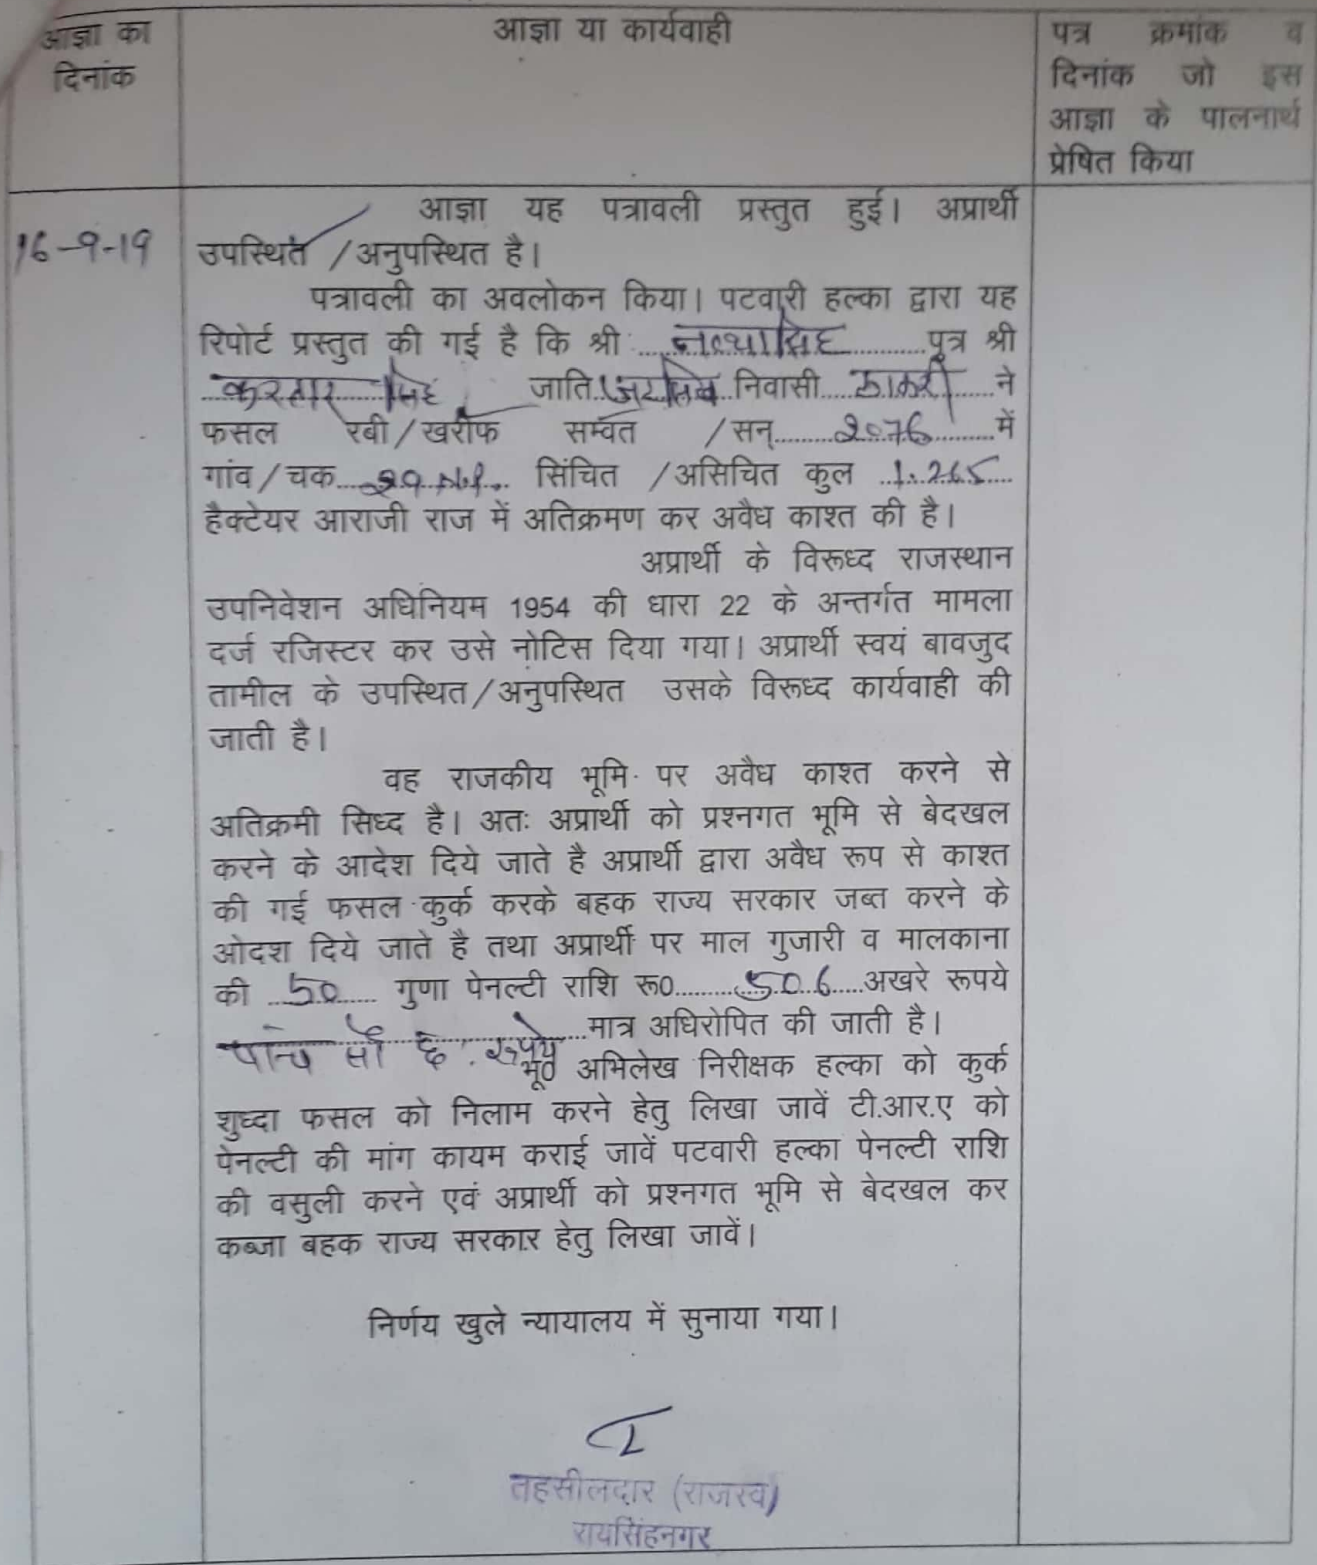 आज्ञा का
दिनांक
आज्ञा या कार्यवाही
पत्र क्रमांक व
दिनांक जो इस
आज्ञा के पालनार्थ
प्रेषित किया
16-9-19
आज्ञा यह पत्रावली प्रस्तुत हुई। अप्रार्थी
उपस्थित /अनुपस्थित है।
पत्रावली का अवलोकन किया। पटवारी हल्का द्वारा यह
रिपोर्ट प्रस्तुत की गई है कि श्री नत्थासिंह पुत्र श्री
करतार सिंह जाति निवासी ने
फसल रबी/खरीफ सम्वत /सन् 2076 में
गांव/चक सिंचित /असिचित कुल 1.265
हैक्टेयर आराजी राज में अतिक्रमण कर अवैध काश्त की है।
अप्रार्थी के विरूध्द राजस्थान
उपनिवेशन अधिनियम 1954 की धारा 22 के अन्तर्गत मामला
दर्ज रजिस्टर कर उसे नोटिस दिया गया। अप्रार्थी स्वयं बावजुद
तामील के उपस्थित/अनुपस्थित उसके विरूध्द कार्यवाही की
जाती है।
वह राजकीय भूमि पर अवैध काश्त करने से
अतिक्रमी सिध्द है। अतः अप्रार्थी को प्रश्नगत भूमि से बेदखल
करने के आदेश दिये जाते है अप्रार्थी द्वारा अवैध रूप से काश्त
की गई फसल कुर्क करके बहक राज्य सरकार जब्त करने के
ओदश दिये जाते है तथा अप्रार्थी पर माल गुजारी व मालकाना
की 50 गुणा पेनल्टी राशि रू0 506 अखरे रूपये
पान्च सौ छः रुपये मात्र अधिरोपित की जाती है।
भू0 अभिलेख निरीक्षक हल्का को कुर्क
शुध्दा फसल को निलाम करने हेतु लिखा जावें टी.आर.ए को
पेनल्टी की मांग कायम कराई जावें पटवारी हल्का पेनल्टी राशि
की वसुली करने एवं अप्रार्थी को प्रश्नगत भूमि से बेदखल कर
कब्जा बहक राज्य सरकार हेतु लिखा जावें।
निर्णय खुले न्यायालय में सुनाया गया।
तहसीलदार (राजस्व)
रायसिंहनगर